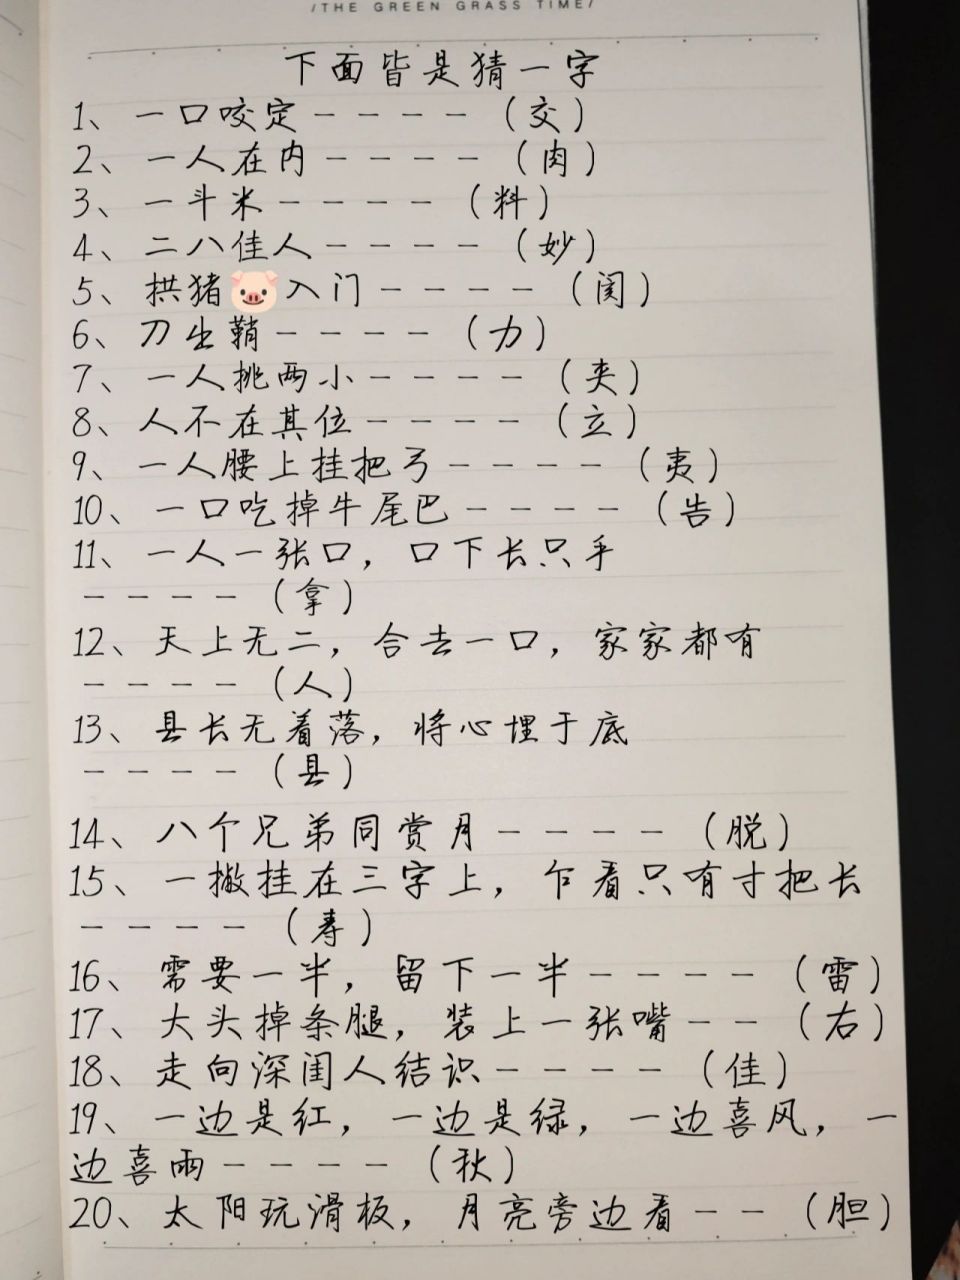 /THE GREEN GRASS TIME/
下面皆是猜一字
1、一口咬定----（交）
2、一人在内----（肉）
3、一斗米----（料）
4、二八佳人----（妙）
5、拱猪🐷入门----（阂）
6、刀出鞘----（力）
7、一人挑两小----（夹）
8、人不在其位----（立）
9、一人腰上挂把弓----（夷）
10、一口吃掉牛尾巴----（告）
11、一人一张口，口下长只手
----（拿）
12、天上无二，合去一口，家家都有
----（人）
13、县长无着落，将心埋于底
----（县）
14、八个兄弟同赏月----（脱）
15、一撇挂在三字上，乍看只有寸把长
----（寿）
16、需要一半，留下一半----（雷）
17、大头掉条腿，装上一张嘴--（右）
18、走向深闺人结识----（佳）
19、一边是红，一边是绿，一边喜风，一
边喜雨----（秋）
20、太阳玩滑板，月亮旁边看--（胆）